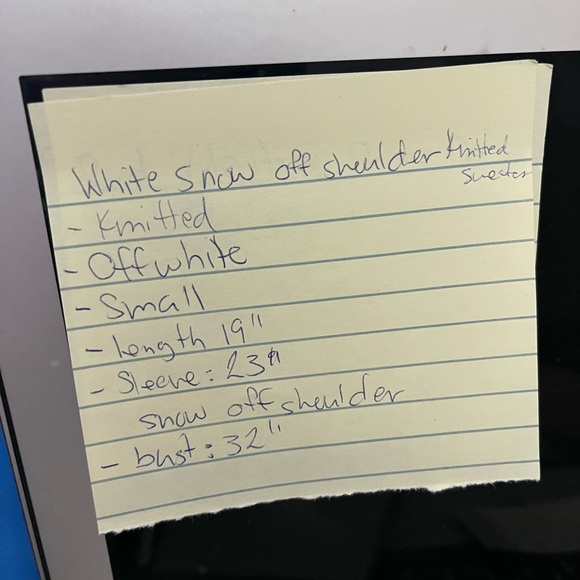 White snow off shoulder Knitted
Sweater
- Knitted
- Offwhite
- Small
- length 19"
- Sleeve: 23"
snow off shoulder
- bust: 32"